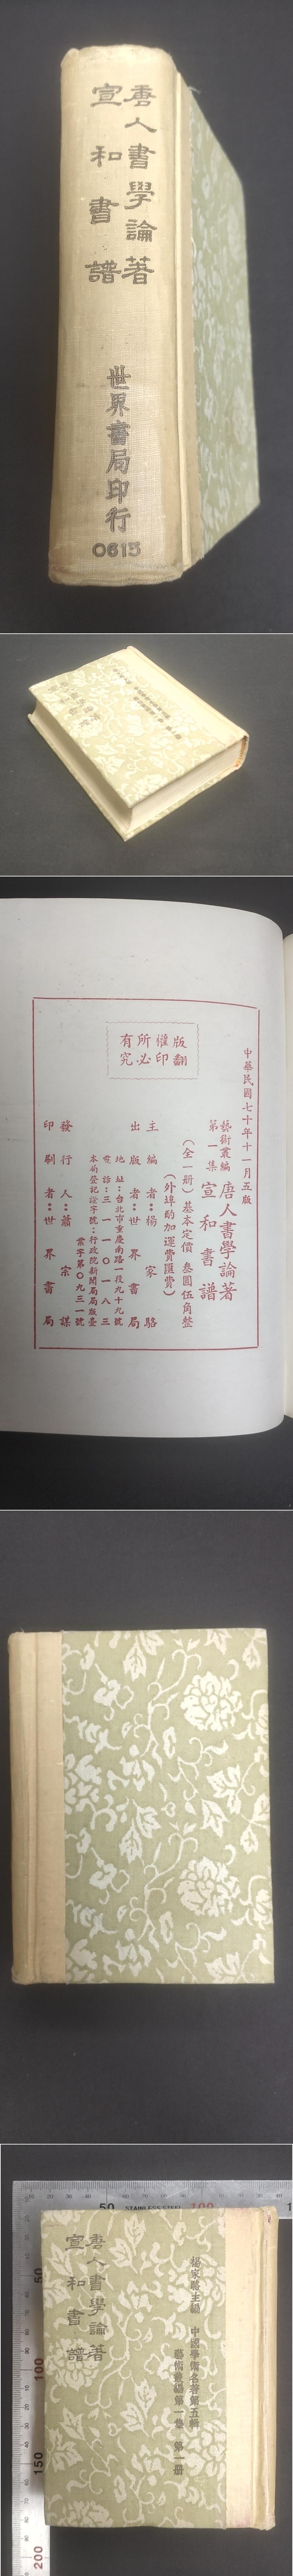 唐人書學論著
宣和書譜
世界書局印行
0613
中華民國七十年十一月五版
藝術叢編
第一集
唐人書學論著
宣和書譜
(全一册)基本定價 叁圓伍角整
(外埠酌加運費匯費)
主編者:楊家駱
出版者:世界書局
地址:台北市重慶南路一段九十九號
電話:三一一〇一八三
本局登記證字號:行政院新聞局局版臺
業字第〇九三一號
發行人:蕭宗謀
印刷者:世界書局
版權所有
翻印必究
楊家駱主編 中國學術名著第五輯
藝術叢編第一集 第一册
唐人書學論著
宣和書譜
50
STAINLESS STEEL
100
50
100
150
200